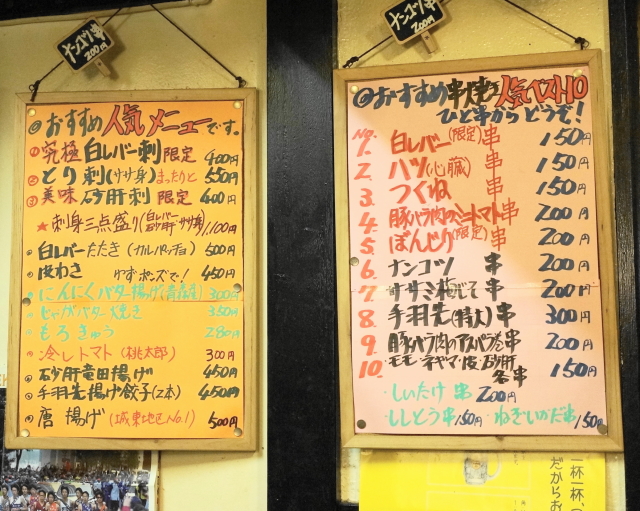 ナンコツ串
200円
◎おすすめ人気メニューです。
究極 白レバー刺 限定 400円
とり刺(ササ身)まったりと 550円
美味 砂肝刺 限定 400円
★刺身三点盛り(白レバー 砂肝 ササ身) 1,100円
白レバーたたき(カルパッチョ) 500円
皮わさ ゆずポンズで! 450円
にんにくバター揚げ(青森産) 300円
じゃがバター焼き 350円
もろきゅう 280円
冷しトマト(桃太郎) 300円
砂肝竜田揚げ 450円
手羽先揚げ餃子(2本) 450円
唐揚げ(城東地区No.1) 500円
ナンコツ串
200円
◎おすすめ串焼き人気ベスト10
ひと串からどうぞ!
No.
1. 白レバー(限定)串 150円
2. ハツ(心臓)串 150円
3. つくね 串 150円
4. 豚バラ肉のミニトマト串 200円
5. ぼんじり(限定)串 200円
6. ナンコツ 串 200円
7. ササミ梅しそ 200円
8. 手羽先(特大) 串 300円
9. 豚バラ肉のアスパラ巻串 200円
10. モモ・ネギマ・皮・砂肝 各串 150円
・しいたけ 串 200円
・ししとう串 150円 ・ねぎいかだ串 150円
一杯一杯、
だからお